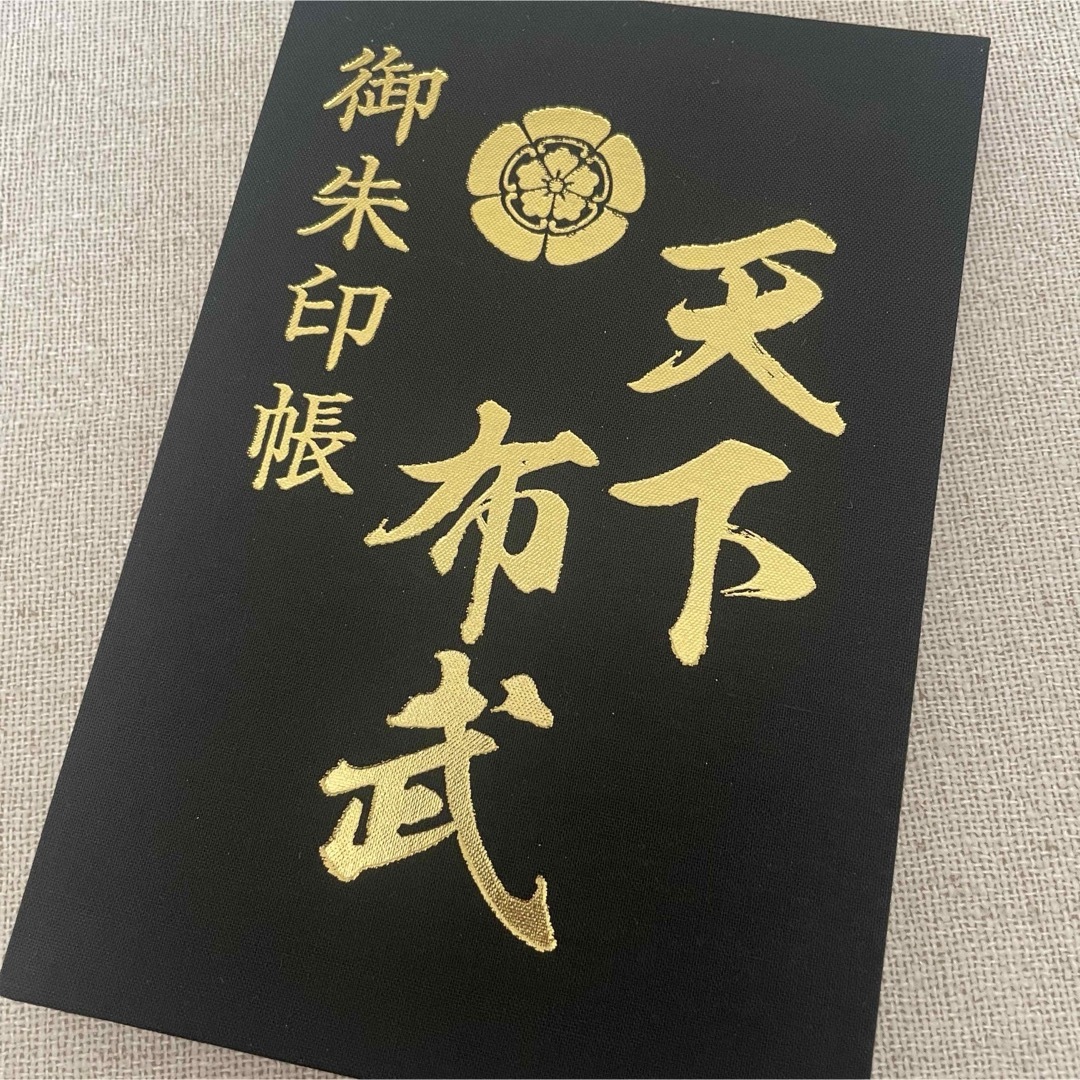 天下
布武
御朱印帳